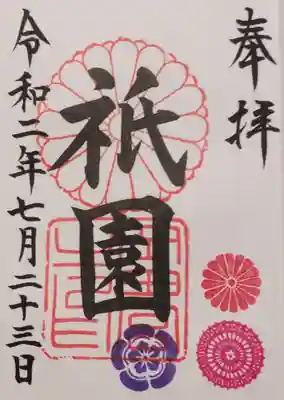 奉拝
祇園
令和二年七月二十三日